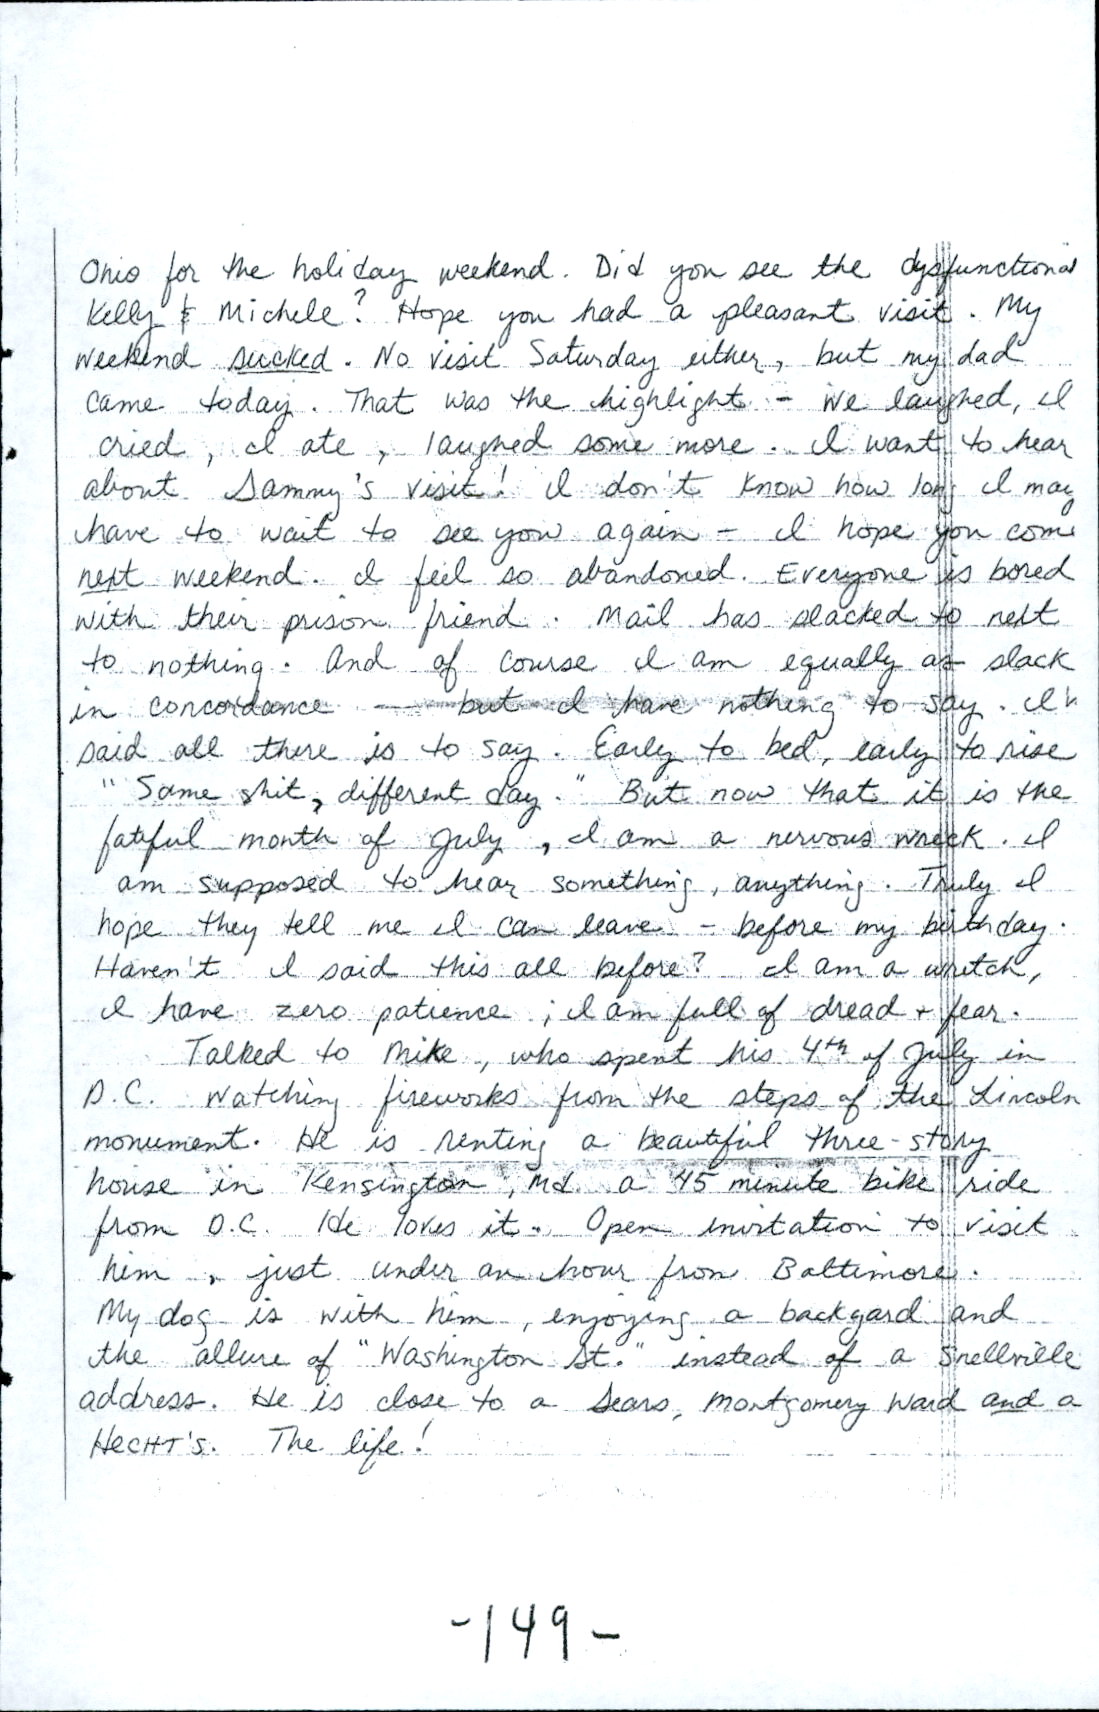 Ohio for the holiday weekend. Did you see the dysfunctional
Kelly & Michele? Hope you had a pleasant visit. My
weekend sucked. No visit Saturday either, but my dad
came today. That was the highlight - we laughed, I
cried, I ate, laughed some more. I want to hear
about Sammy's visit! I don't know how long I may
have to wait to see you again - I hope you come
next weekend. I feel so abandoned. Everyone is bored
with their prison friend. Mail has slacked to next
to nothing. And of course I am equally as slack
in concordance — but I have nothing to say. I'v
said all there is to say. Early to bed, early to rise
"Same shit, different day." But now that it is the
fateful month of July, I am a nervous wreck. I
am supposed to hear something, anything. Truly I
hope they tell me I can leave - before my birthday.
Haven't I said this all before? I am a wretch,
I have zero patience; I am full of dread + fear.
Talked to Mike, who spent his 4th of July in
D.C. watching fireworks from the steps of the Lincoln
monument. He is renting a beautiful three-story
house in Kensington, Md. a 45 minute bike ride
from D.C. He loves it. Open invitation to visit
him, just under an hour from Baltimore.
My dog is with him, enjoying a backyard and
the allure of "Washington St." instead of a Snellville
address. He is close to a Sears, Montgomery Ward and a
HECHT'S. The life!
-149-